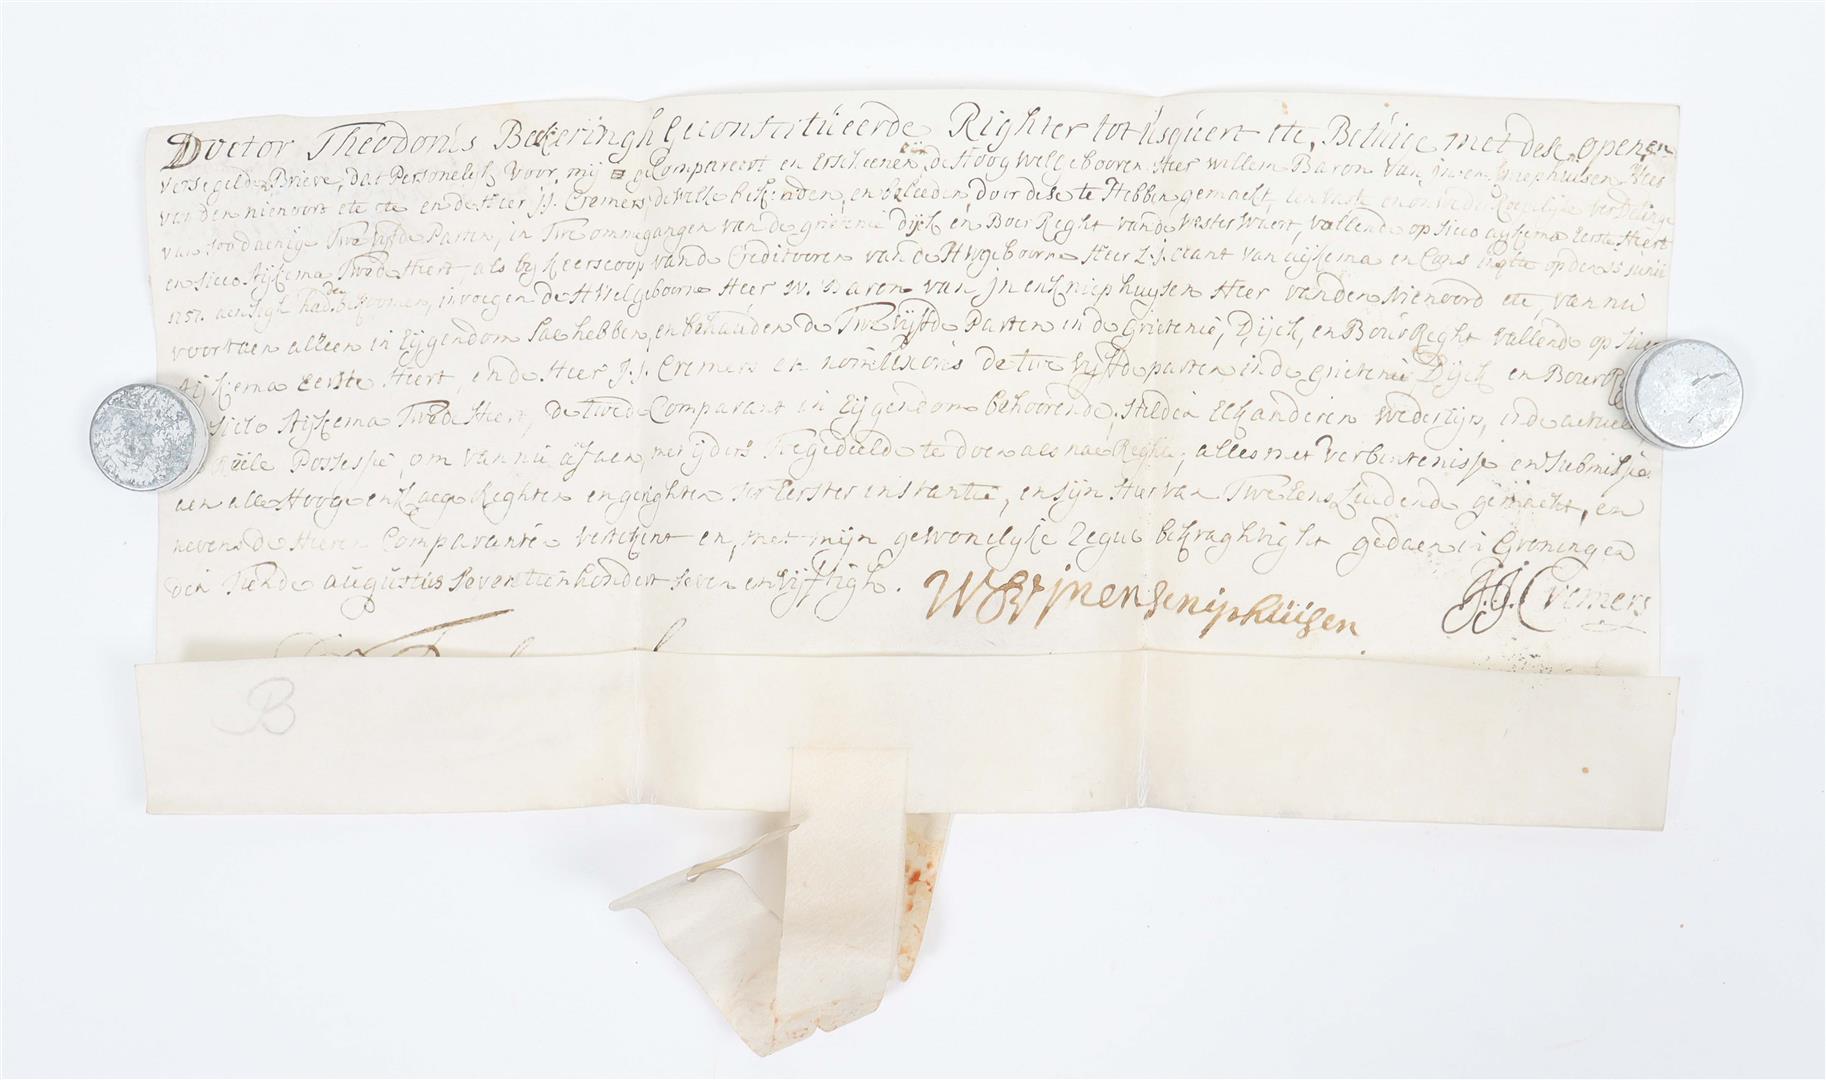 Doctor Theodorus Beckeringh Geconstitueerde Righter tot Usquert etc, Betuige met dese openen
versegelden Brieve, dat Personelik voor mij gecompareert en Erscheenen zijn de Hoog welgebooren Heer willem Baron van jn en kniephuisen Heer
van den nienoort etc etc en de Heer J.J. Cremers dewelke bekenden en beleeden door dese te Hebben gemaekt, een vaste en onwederroepelijke verdelinge
van soodaenige Twe vijfde Parten, in Twe ommegangen van de grietenie Dijck en Boer Reght van de wester waert, vallende op sicco aykema Eerste Heert
en sicco Aijkema Twede Heert als by keerscoop van de Creditooren van de HWgeboorne Heer E.J. Clant van aijkema en Cons op den 15 junii
1757. aen sigh hadden bekoomen, invoegen de HWelgeboorne Heer W. Baron van jn en kniephuysen Heer van den Nienoord etc, van nu
voortaen alleen in Eijgendom sal hebben, en behouden de Twe vijfde Parten in de Grietenie, Dijck, en Bour Reght vallende op sicco
Aijkema Eerste Heert, en de Heer J.J. Cremers en de twe vijfde parten in de Grietenie Dijck en Bouer
sicco Aijkema Twede Heert, de twede Comparant in Eijgendom behoorende, stelden Elkanderen wedersijts, in de actuele
Reële Possessie, om van nu af aen, met ijders Toegedeelde te doen als nae Reghte; alles met verbintenisse en submissie
aen alle Hooge en Laege Reghten en gerighten ter Eerster instantie, en sijn Hier van Twe Eens Luidende gemaekt, en
nevens de Heeren Comparanten verteikent en, met mijn gewonelijke Zegul bekraghtight gedaen in Groningen
den Tiende augustus seventienhondert seven en vijftigh.
W B V jn en kniphuisen
J.J. Cremers
B